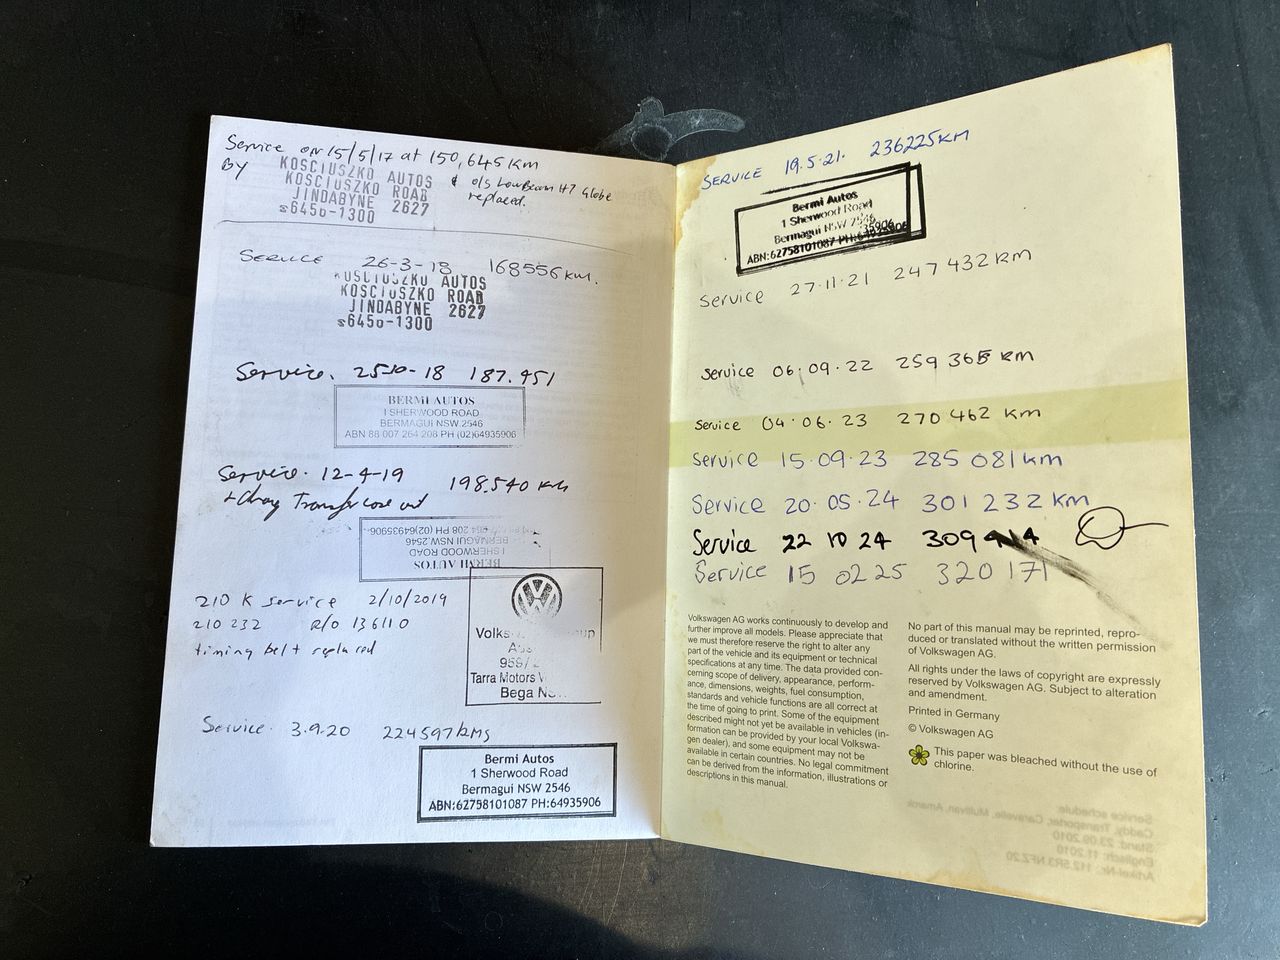 Service on 15/5/17 at 150,645 km
By
KOSCIUSZKO AUTOS
KOSCIUSZKO ROAD
JINDABYNE 2627
& o/s Low Beam H7 Globe
replaced.
SERVICE 26-3-18 168556 km.
KOSCIUSZKO AUTOS
KOSCIUSZKO ROAD
JINDABYNE 2627
Service. 18 187.951
BERMI AUTOS
1 SHERWOOD ROAD
BERMAGUI NSW 2546
ABN 88 007 264 208 PH (02)64935906
Service. 12-4-19 198.540 km
Transfer case
BERMI AUTOS
1 SHERWOOD ROAD
BERMAGUI NSW.2546
208 PH (02)64935906
210 K service 2/10/2019
210 232 R/O 136110
timing belt replaced
Tarra Motors
Bega
Service. 3.9.20 224597 kms
Bermi Autos
1 Sherwood Road
Bermagui NSW 2546
ABN:62758101087 PH:64935906
SERVICE 19.5.21. 236225KM
Bermi Autos
1 Sherwood Road
Bermagui NSW 2546
ABN:62758101087 PH:64935906
Service 27.11.21 247 432 km
Service 06.09.22 259 365 km
Service 04.06.23 270 462 km
Service 15.09.23 285 081 km
Service 20.05.24 301 232 km
Service 22 10 24 309 414
Service 15 02 25 320 171
Volkswagen AG works continuously to develop and
further improve all models. Please appreciate that
we must therefore reserve the right to alter any
part of the vehicle and its equipment or technical
specifications at any time. The data provided con-
cerning scope of delivery, appearance, perform-
ance, dimensions, weights, fuel consumption,
standards and vehicle functions are all correct at
the time of going to print. Some of the equipment
described might not yet be available in vehicles (in-
formation can be provided by your local Volkswa-
gen dealer), and some equipment may not be
available in certain countries. No legal commitment
can be derived from the information, illustrations or
descriptions in this manual.
No part of this manual may be reprinted, repro-
duced or translated without the written permission
of Volkswagen AG.
All rights under the laws of copyright are expressly
reserved by Volkswagen AG. Subject to alteration
and amendment.
Printed in Germany
© Volkswagen AG
This paper was bleached without the use of
chlorine.
Service schedule
Caddy, Transporter, Caravelle, Multivan, Amarok
Stand: 23.09.2010
Englisch: 11.2010
Artikel-Nr.: 112.5R3.NFZ.20